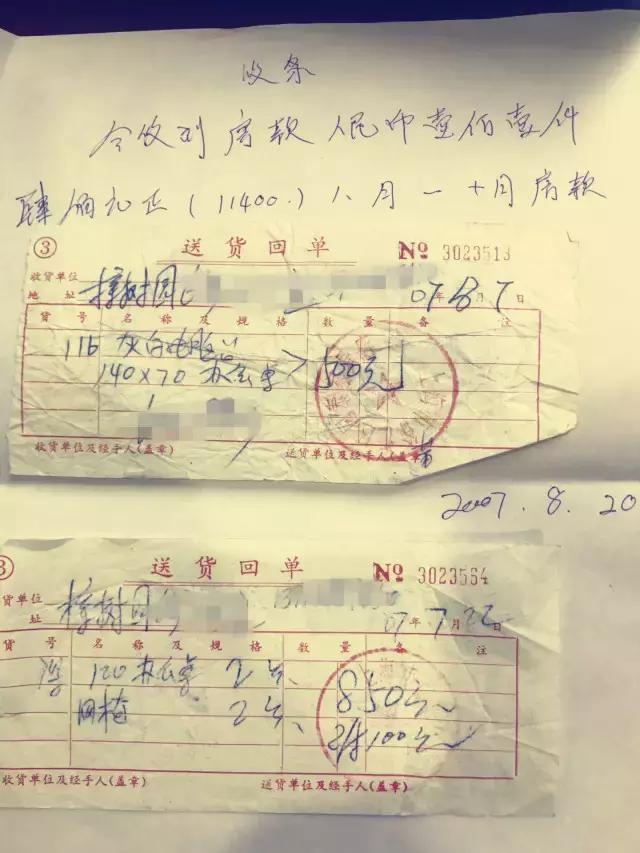 收条
今收到房款人民币壹佰壹仟
肆佰元正(11400.)八月一十月房款
③ 送货回单 № 3023513
收货单位
地址 樟树园 07年8月7日
货号 名称及规格 数量 备注
116 灰白电脑
140×70 办公桌 500元
1
收货单位及经手人(盖章) 送货单位及经手人(盖章)
2007.8.20
③ 送货回单 № 3023564
货单位
址 樟树园 07年7月22日
号 名称及规格 数量 备注
120 办公桌 2 850元
网椅 2 100元
收货单位及经手人(盖章) 送货单位及经手人(盖章)